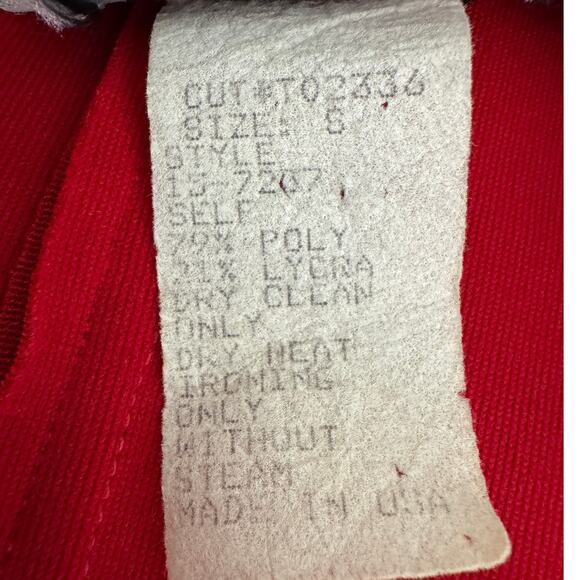 CUT#T02336
SIZE: S
STYLE
15-7207
SELF
79% POLY
21% LYCRA
DRY CLEAN
ONLY
DRY HEAT
IRONING
ONLY
WITHOUT
STEAM
MADE IN USA